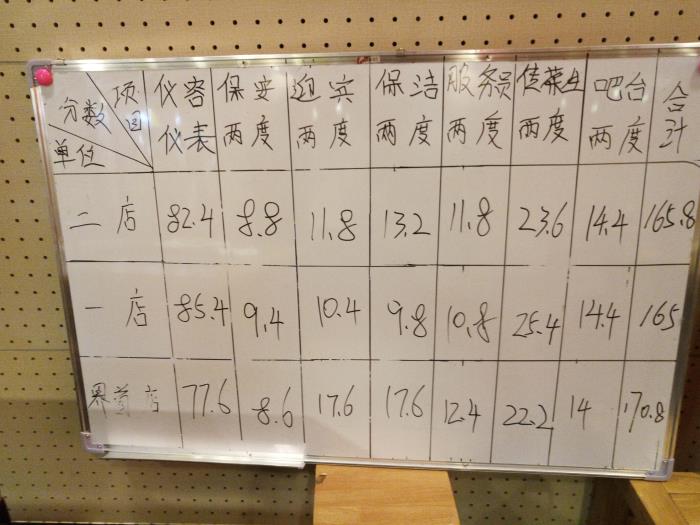 分数 项目 单位 仪容仪表 保安两度 迎宾两度 保洁两度 服务员两度 传菜生两度 吧台两度 合计
二店 82.4 8.8 11.8 13.2 11.8 23.6 14.4 165.8
一店 85.4 9.4 10.4 9.8 10.8 25.4 14.4 165
界首店 77.6 8.6 17.6 17.6 12.4 22.2 14 170.8